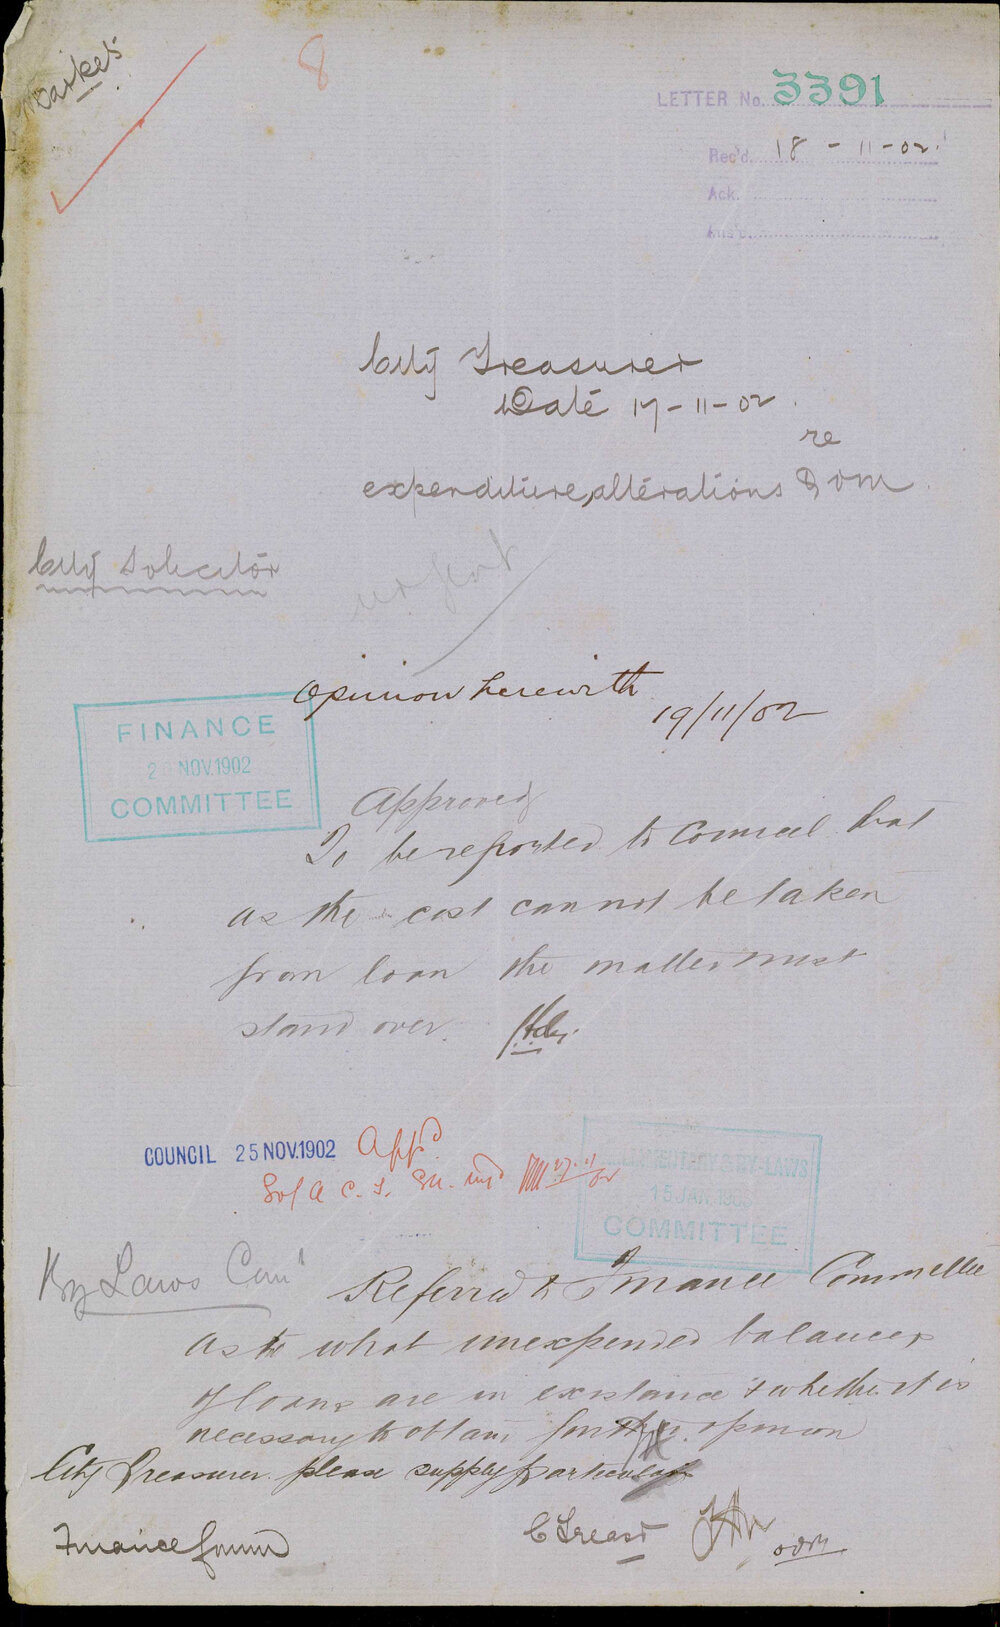 Markets
8
LETTER No. 3391
Rec'd. 18 - 11 - 02.
Ack.
Ans'd.
City Treasurer
Date 17-11-02.
re
expenditure, alterations
City Solicitor
urgent
Opinion herewith
19/11/02
FINANCE
20 NOV. 1902
COMMITTEE
Approved
To be reported to Council that
as the cost cannot be taken
from loan the matter must
stand over.
COUNCIL 25 NOV. 1902 Appd
& BY-LAWS
15 JAN. 1903
COMMITTEE
By Laws Com
Referred to Finance Committee
as to what unexpended balances
of loans are in existence & whether it is
necessary to obtain further opinion
City Treasurer please supply particulars
C Treasr
Finance Comm